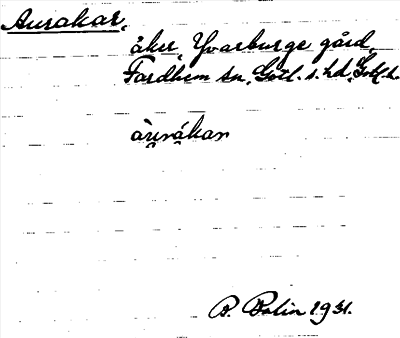 Aurakar,
åker, Yvarburge gård,
Fardhem sn, Gotl. s. hd, Gotl. l.
àu̯rákar
B. Bolin 1931.